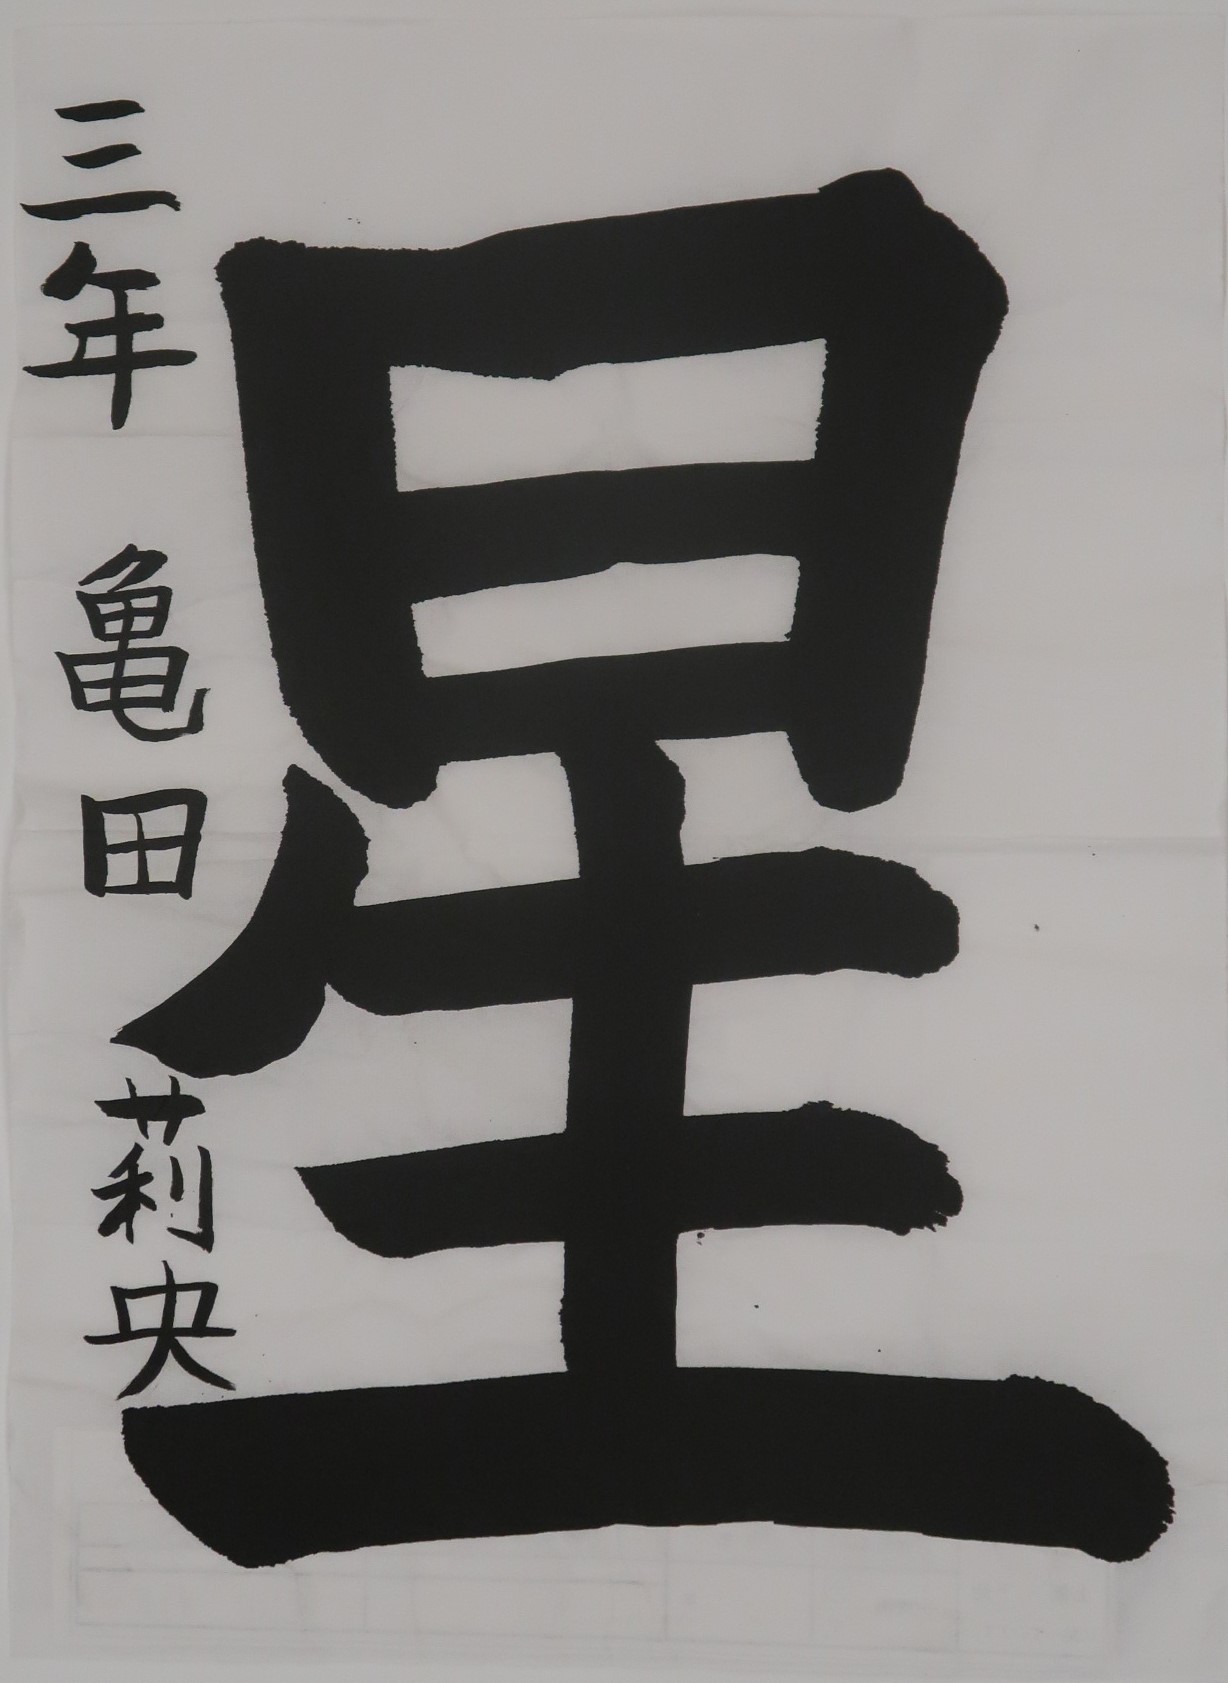 星
三年 亀田莉央